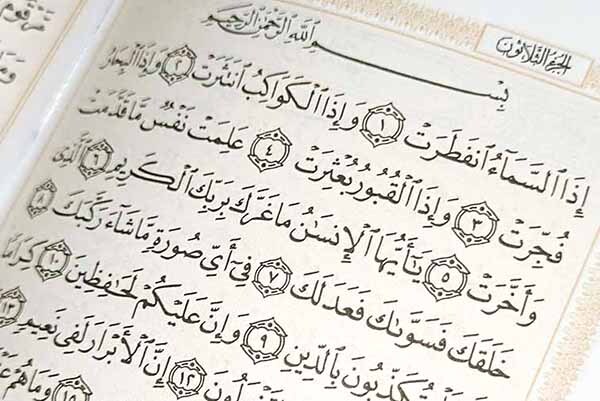 الجزء الثلاثون
بِسْمِ ٱللَّهِ ٱلرَّحْمَٰنِ ٱلرَّحِيمِ
إِذَا ٱلسَّمَآءُ ٱنفَطَرَتْ ١ وَإِذَا ٱلْكَوَاكِبُ ٱنتَثَرَتْ ٢ وَإِذَا ٱلْبِحَارُ
فُجِّرَتْ ٣ وَإِذَا ٱلْقُبُورُ بُعْثِرَتْ ٤ عَلِمَتْ نَفْسٌ مَّا قَدَّمَتْ
وَأَخَّرَتْ ٥ يَٰٓأَيُّهَا ٱلْإِنسَٰنُ مَا غَرَّكَ بِرَبِّكَ ٱلْكَرِيمِ ٦ ٱلَّذِى
خَلَقَكَ فَسَوَّىٰكَ فَعَدَلَكَ ٧ فِىٓ أَىِّ صُورَةٍ مَّا شَآءَ رَكَّبَكَ ٨
تُكَذِّبُونَ بِٱلدِّينِ ٩ وَإِنَّ عَلَيْكُمْ لَحَٰفِظِينَ ١٠ كِرَامًا
١٢ إِنَّ ٱلْأَبْرَارَ لَفِى نَعِيمٍ ١٣
١٥ وَمَا هُمْ